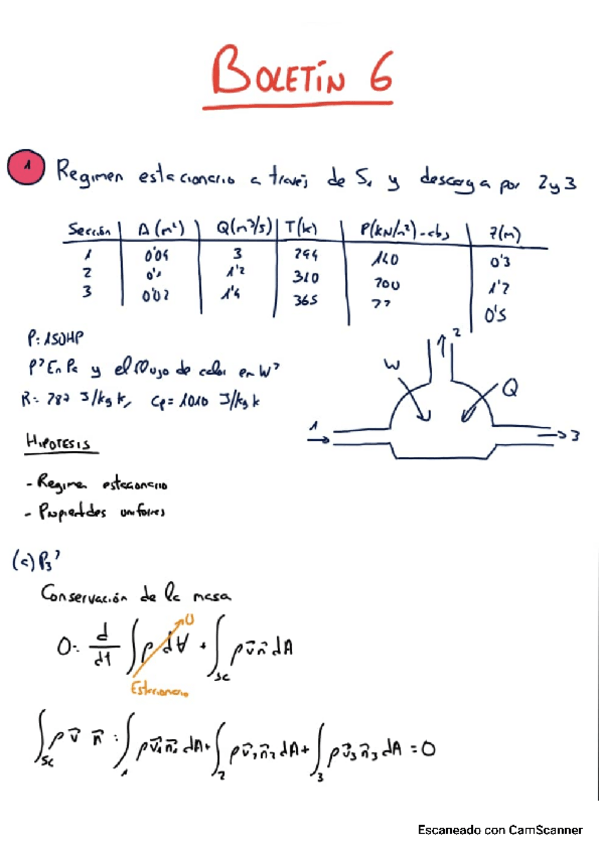 BOLETÍN 6
1 Regimen estacionario a través de S1 y descarga por 2 y 3
Sección A (m²) Q(m³/s) T(k) P(kN/m²)-abs z(m)
1 0'04 3 294 140 0'3
2 0'1 1'2 310 200 1'2
3 0'02 1'4 365 ?? 0'5
P: 150HP
P? En Pa y el flujo de calor en W?
R = 287 J/kg k, Cp = 1010 J/kg k
2
W
Q
1
3
HIPOTESIS
- Regimen estacionario
- Propiedades uniformes
(a) P3?
Conservación de la masa
0 = d/dt ∫ρ d∀ + ∫sc ρ v⃗ n⃗ dA
0
Estacionario
∫sc ρ v⃗ n⃗ = ∫1 ρ v⃗1 n⃗1 dA + ∫2 ρ v⃗2 n⃗2 dA + ∫3 ρ v⃗3 n⃗3 dA = 0
Escaneado con CamScanner